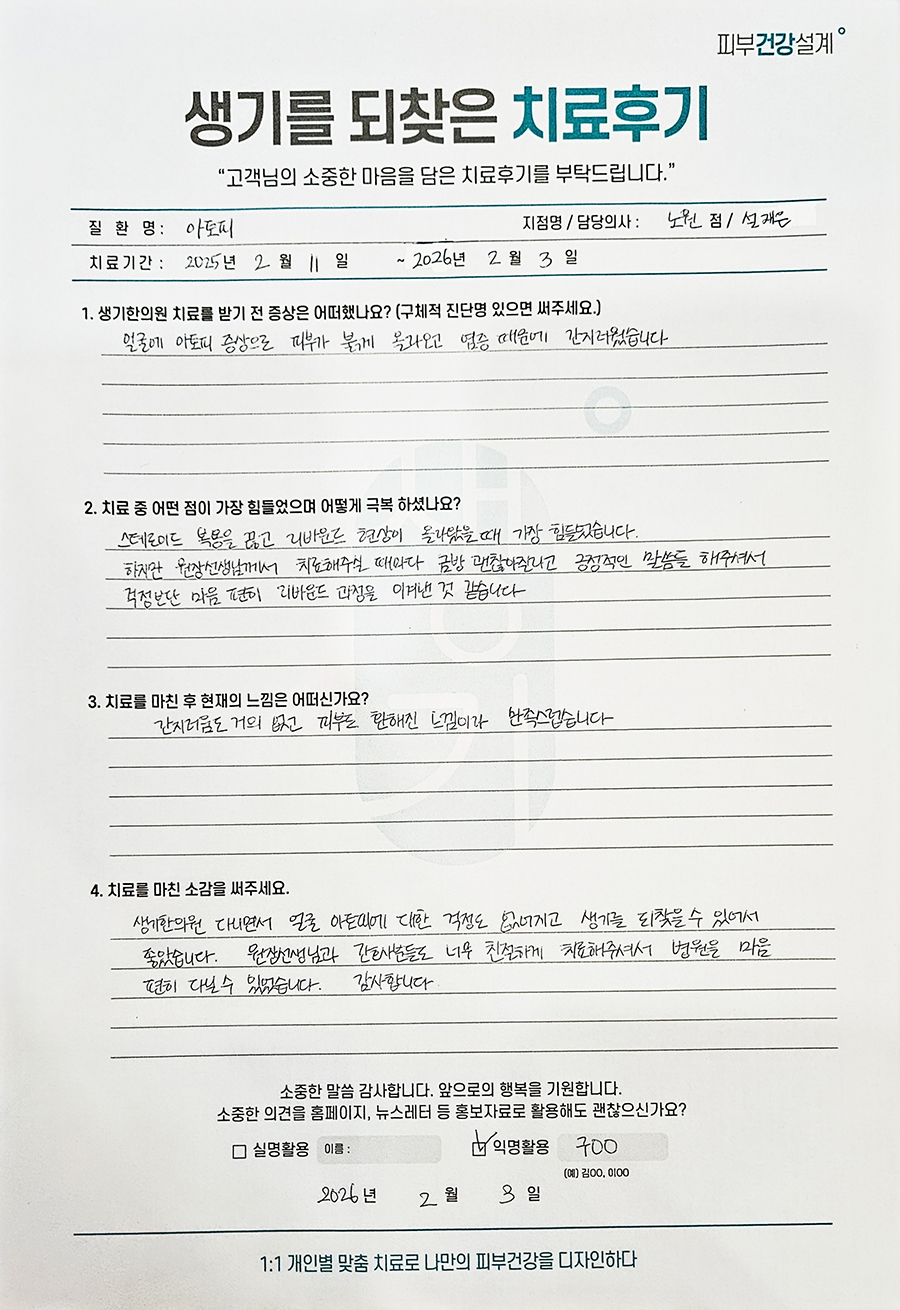 피부건강설계
생기를 되찾은 치료후기
“고객님의 소중한 마음을 담은 치료후기를 부탁드립니다.”
질 환 명 : 아토피 지점명 / 담당의사 : 노원 점 / 설재은
치료기간 : 2025년 2 월 11 일 ~ 2026년 2 월 3 일
1. 생기한의원 치료를 받기 전 증상은 어떠했나요? (구체적 진단명 있으면 써주세요.)
얼굴에 아토피 증상으로 피부가 붉게 올라오고 염증 때문에 간지러웠습니다
2. 치료 중 어떤 점이 가장 힘들었으며 어떻게 극복 하셨나요?
스테로이드 복용을 끊고 리바운드 현상이 올라왔을때 가장 힘들었습니다.
하지만 원장선생님께서 치료해주실 때마다 금방 괜찮아진다고 긍정적인 말씀들 해주셔서
걱정보단 마음 편히 리바운드 과정을 이겨낸 것 같습니다
3. 치료를 마친 후 현재의 느낌은 어떠신가요?
간지러움도 거의 없고 피부도 환해진 느낌이라 만족스럽습니다
4. 치료를 마친 소감을 써주세요.
생기한의원 다니면서 얼굴 아토피에 대한 걱정도 없어지고 생기를 되찾을 수 있어서
좋았습니다. 원장선생님과 간호사분들도 너무 친절하게 치료해주셔서 병원을 마음
편히 다닐수 있었습니다. 감사합니다
소중한 말씀 감사합니다. 앞으로의 행복을 기원합니다.
소중한 의견을 홈페이지, 뉴스레터 등 홍보자료로 활용해도 괜찮으신가요?
실명활용 이름 : 익명활용 지00
(예) 김00, 이00
2026년 2 월 3 일
1:1 개인별 맞춤 치료로 나만의 피부건강을 디자인하다